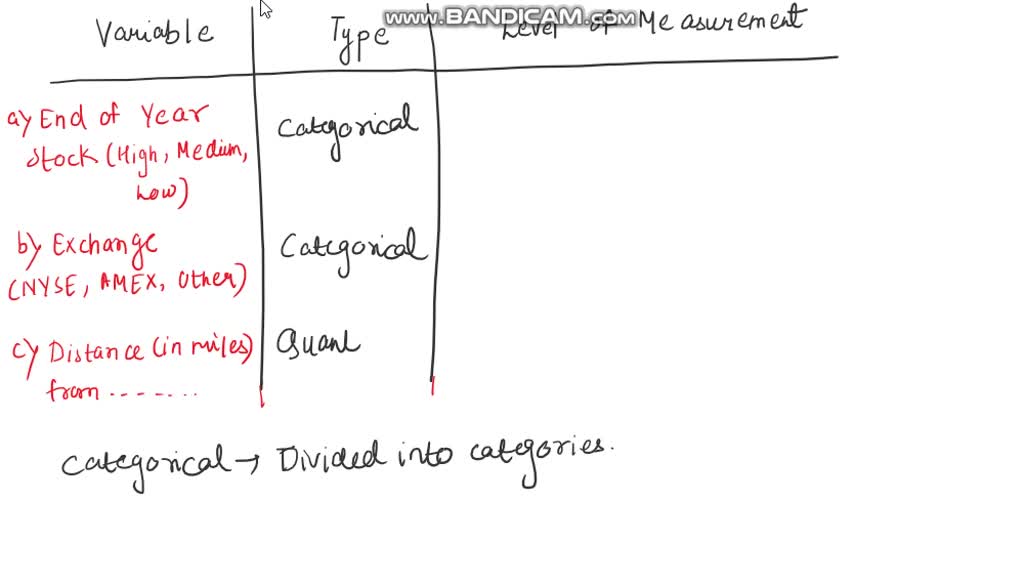 www.BANDICAM.com
Variable Type Level of Measurement
a) End of Year Categorical
Stock (High, Medium,
Low)
b) Exchange Categorical
(NYSE, AMEX, Other)
c) Distance (in miles) Quant
from ........
Categorical → Divided into categories.